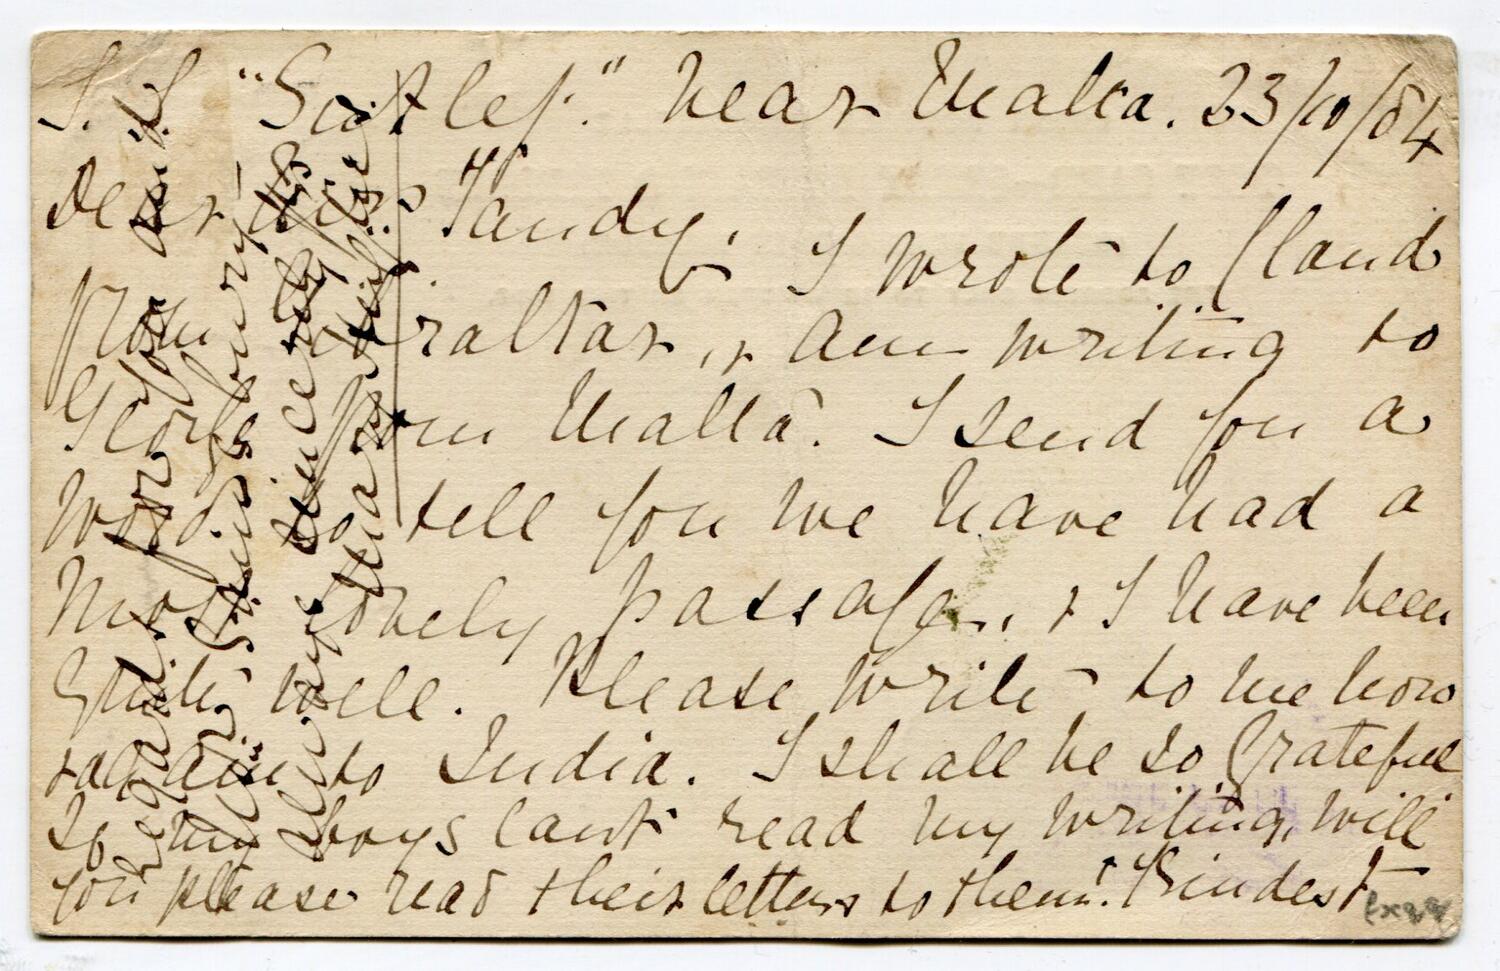 S.S. "Sutlej." Near Malta. 23/10/84
Dear Mrs Tandy,
I wrote to Claud
from Gibraltar, & am writing to
George from Malta. I send you a
word to tell you we have had a
most lovely passage, & I have been
quite well. Please write to me now
& again to India. I shall be so grateful
If my boys can't read my writing, will
you please read their letters to them? Kindest
regards for you and
Miss
Always sincerely yrs